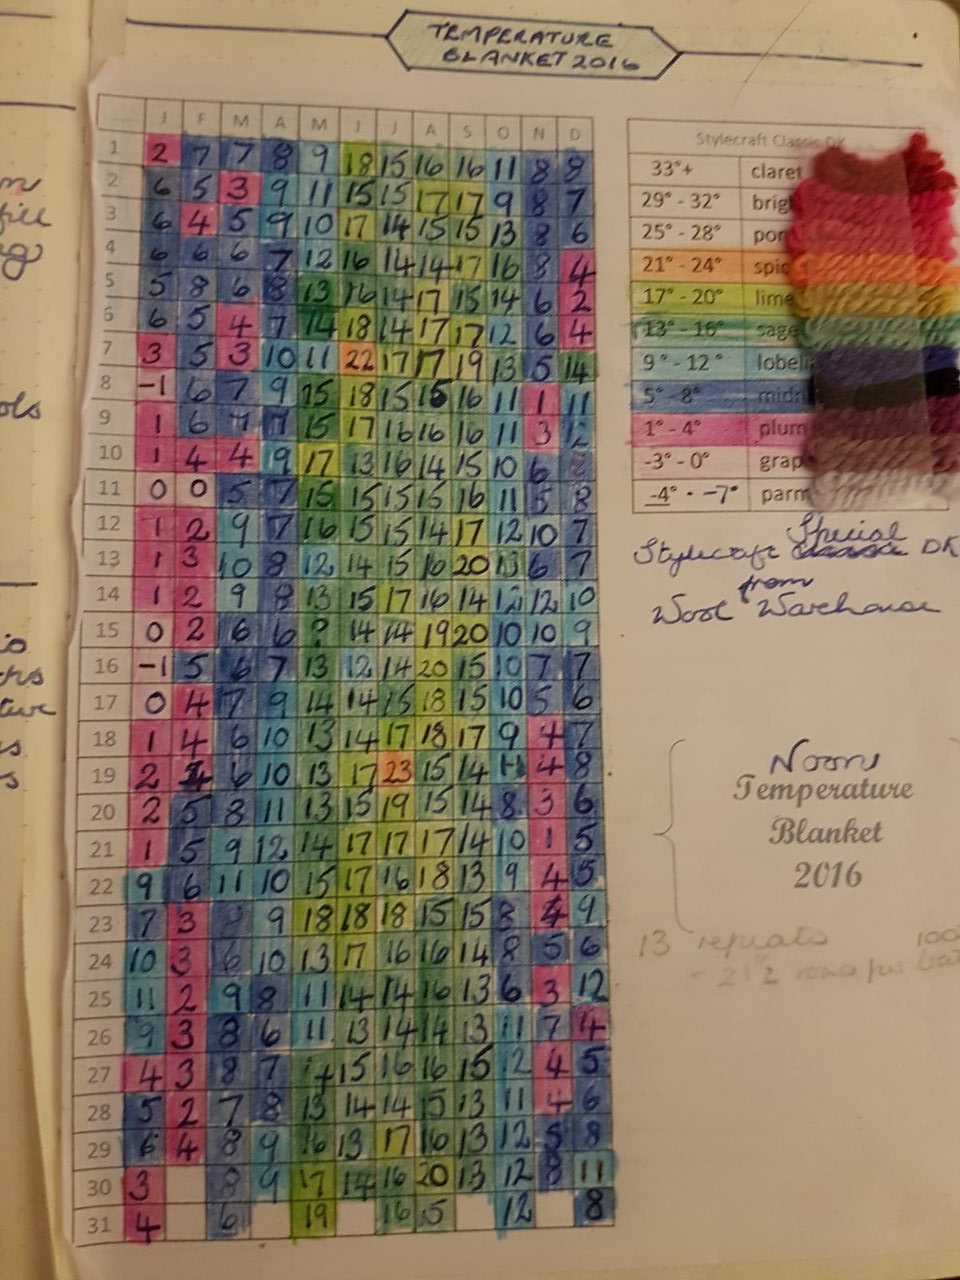 TEMPERATURE
BLANKET 2016
J F M A M J J A S O N D
1 2 7 7 8 9 18 15 16 16 11 8 8
2 6 5 3 9 11 15 15 17 17 9 8 7
3 6 4 5 9 10 17 14 15 15 13 8 6
4 6 6 6 7 12 16 14 14 17 16 8 4
5 5 8 6 8 13 16 14 17 15 14 6 2
6 6 5 4 7 14 18 14 17 17 12 6 4
7 3 5 3 10 11 22 17 17 19 13 5 14
8 -1 6 7 9 15 18 15 15 16 11 1 11
9 1 6 7 7 15 17 16 16 16 11 3 12
10 1 4 4 9 17 13 16 14 15 10 6
11 0 0 5 7 15 15 15 15 16 11 5 8
12 1 2 9 7 16 15 15 14 17 12 10 7
13 1 3 10 8 12 14 15 16 20 13 6 7
14 1 2 9 8 13 15 17 16 14 12 12 10
15 0 2 6 6 ? 14 14 19 20 10 10 9
16 -1 5 6 7 13 12 14 20 15 10 7 7
17 0 4 7 9 14 14 15 18 15 10 5 6
18 1 4 6 10 13 14 17 18 17 9 4 7
19 2 4 6 10 13 17 23 15 14 11 4 8
20 2 5 8 11 13 15 19 15 14 8 3 6
21 1 5 9 12 14 17 17 17 14 10 1 5
22 9 6 11 10 15 17 16 18 13 9 4 5
23 7 3 8 9 18 18 18 15 15 8 4 9
24 10 3 6 10 13 17 16 16 14 8 5 6
25 11 2 9 8 11 14 14 16 13 6 3 12
26 9 3 8 6 11 13 14 14 13 11 7 4
27 4 3 8 7 14 15 16 16 15 12 4 5
28 5 2 7 8 13 14 14 15 13 11 4 6
29 6 4 8 9 16 13 17 16 13 12 5 8
30 3 8 9 17 14 16 20 13 12 8 11
31 4 6 19 16 15 12 8
Stylecraft Classic DK
33°+ claret
29° - 32° brig
25° - 28° pom
21° - 24° spic
17° - 20° lime
13° - 16° sage
9° - 12° lobeli
5° - 8° midn
1° - 4° plum
-3° - 0° grap
-4° - -7° parm
Special
Stylecraft Classic DK
from
Wool Warehouse
Noon
Temperature
Blanket
2016
13 repeats
- 21½ rows per